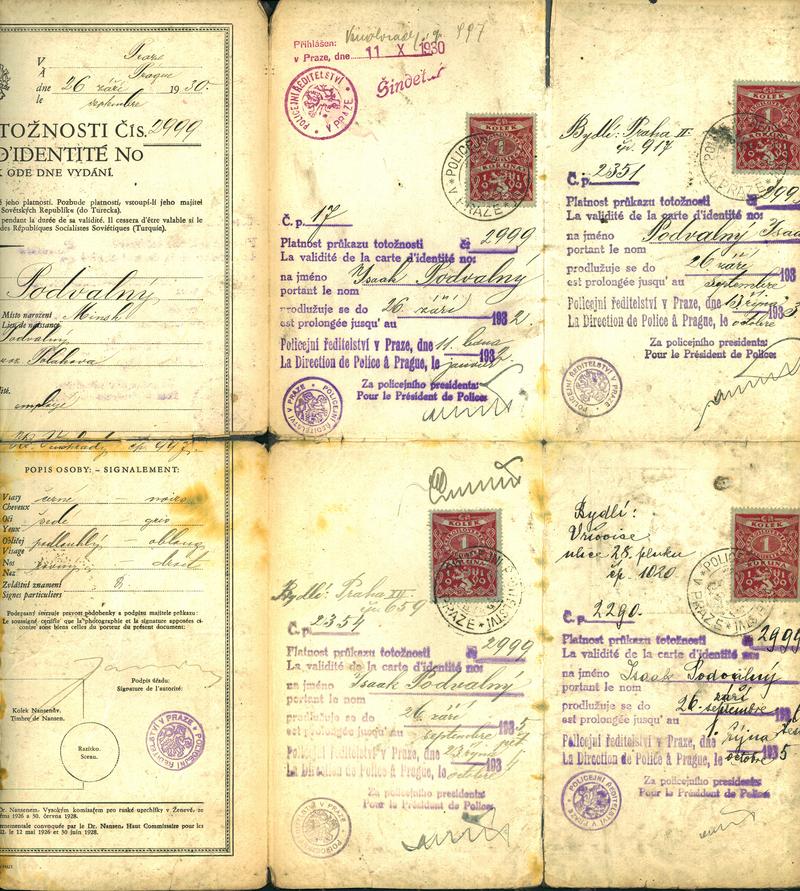 V Praze
A Prague
dne 26 září 1930.
le septembre
TOŽNOSTI Čís. 2999
D'IDENTITÉ No
K ODE DNE VYDÁNÍ.
jeho platnosti. Pozbude platnosti, vstoupí-li jeho majitel
Sovětských Republik (do Turecka).
pendant la durée de sa validité. Il cessera d'être valable si le
des Républiques Socialistes Soviétiques (Turquie).
Podvalný
Místo narození Minsk
Lieu de naissance
Podvalný
roz. Polakova
employé
POPIS OSOBY: – SIGNALEMENT:
Vlasy černé – noirs
Cheveux
Oči šedé – gris
Yeux
Obličej podlouhlý – oblong
Visage
Nos rovný – droit
Nez
Zvláštní znamení
Signes particuliers
Podepsaný stvrzuje pravost podobenky a podpisu majitele průkazu:
Le soussigné certifie que la photographie et la signature apposées ci-
contre sont bien celles du porteur du présent document:
Podpis úřadu:
Signature de l'autorité:
Kolek Nansenův.
Timbre de Nansen.
Razítko.
Sceau.
POLICEJNÍ ŘEDITELSTVÍ V PRAZE
Dr. Nansenem, Vysokým komisařem pro ruské uprchlíky v Ženevě, ze
1926 a 30. června 1928.
convoquée par le Dr. Nansen, Haut Commissaire pour les
le 12 mai 1926 et 30 juin 1928.
Přihlášen:
v Praze, dne 11 X 1930
Šindel
POLICEJNÍ ŘEDITELSTVÍ V PRAZE
KOLEK
1
KORUNA
Č. p. 17
Platnost průkazu totožnosti čís. 2999
La validité de la carte d'identité no:
na jméno Isaak Podvalný
portant le nom
prodlužuje se do 26. září 1932.
est prolongée jusqu' au
Policejní ředitelství v Praze, dne 11. ledna 1932
La Direction de Police à Prague, le janvier
Za policejního presidenta:
Pour le Président de Police:
POLICEJNÍ ŘEDITELSTVÍ V PRAZE
Bydlí: Praha II
čp. 917
KOLEK
1
KORUNA
Č. p. 2351
Platnost průkazu totožnosti
La validité de la carte d'identité no:
na jméno Podvalný Isaa
portant le nom
prodlužuje se do 26. září 193
est prolongée jusqu' au septembre
Policejní ředitelství v Praze, dne října 193
La Direction de Police à Prague, le octobre
Za policejního presidenta:
Pour le Président de Police:
POLICEJNÍ ŘEDITELSTVÍ V PRAZE
KOLEK
1
KORUNA
Bydlí: Praha
čp. 659
Č. p. 2354
Platnost průkazu totožnosti čís. 2999
La validité de la carte d'identité no:
na jméno Isaak Podvalný
portant le nom
prodlužuje se do 26. září 1935
est prolongée jusqu' au septembre
Policejní ředitelství v Praze, dne 23 října 1934
La Direction de Police à Prague, le octobre
Za policejního presidenta:
Pour le Président de Police:
POLICEJNÍ ŘEDITELSTVÍ V PRAZE
Bydlí:
Vršovice
ulice 28. pluku
čp. 1020
KOLEK
1
KORUNA
Č. p. 2290.
Platnost průkazu totožnosti čís. 2999
La validité de la carte d'identité no:
na jméno Isaak Podvalný
portant le nom
prodlužuje se do 26. září 193
est prolongée jusqu' au septembre
Policejní ředitelství v Praze, dne 1. října 1935
La Direction de Police à Prague, le octobre
Za policejního presidenta:
Pour le Président de Police:
POLICEJNÍ ŘEDITELSTVÍ V PRAZE